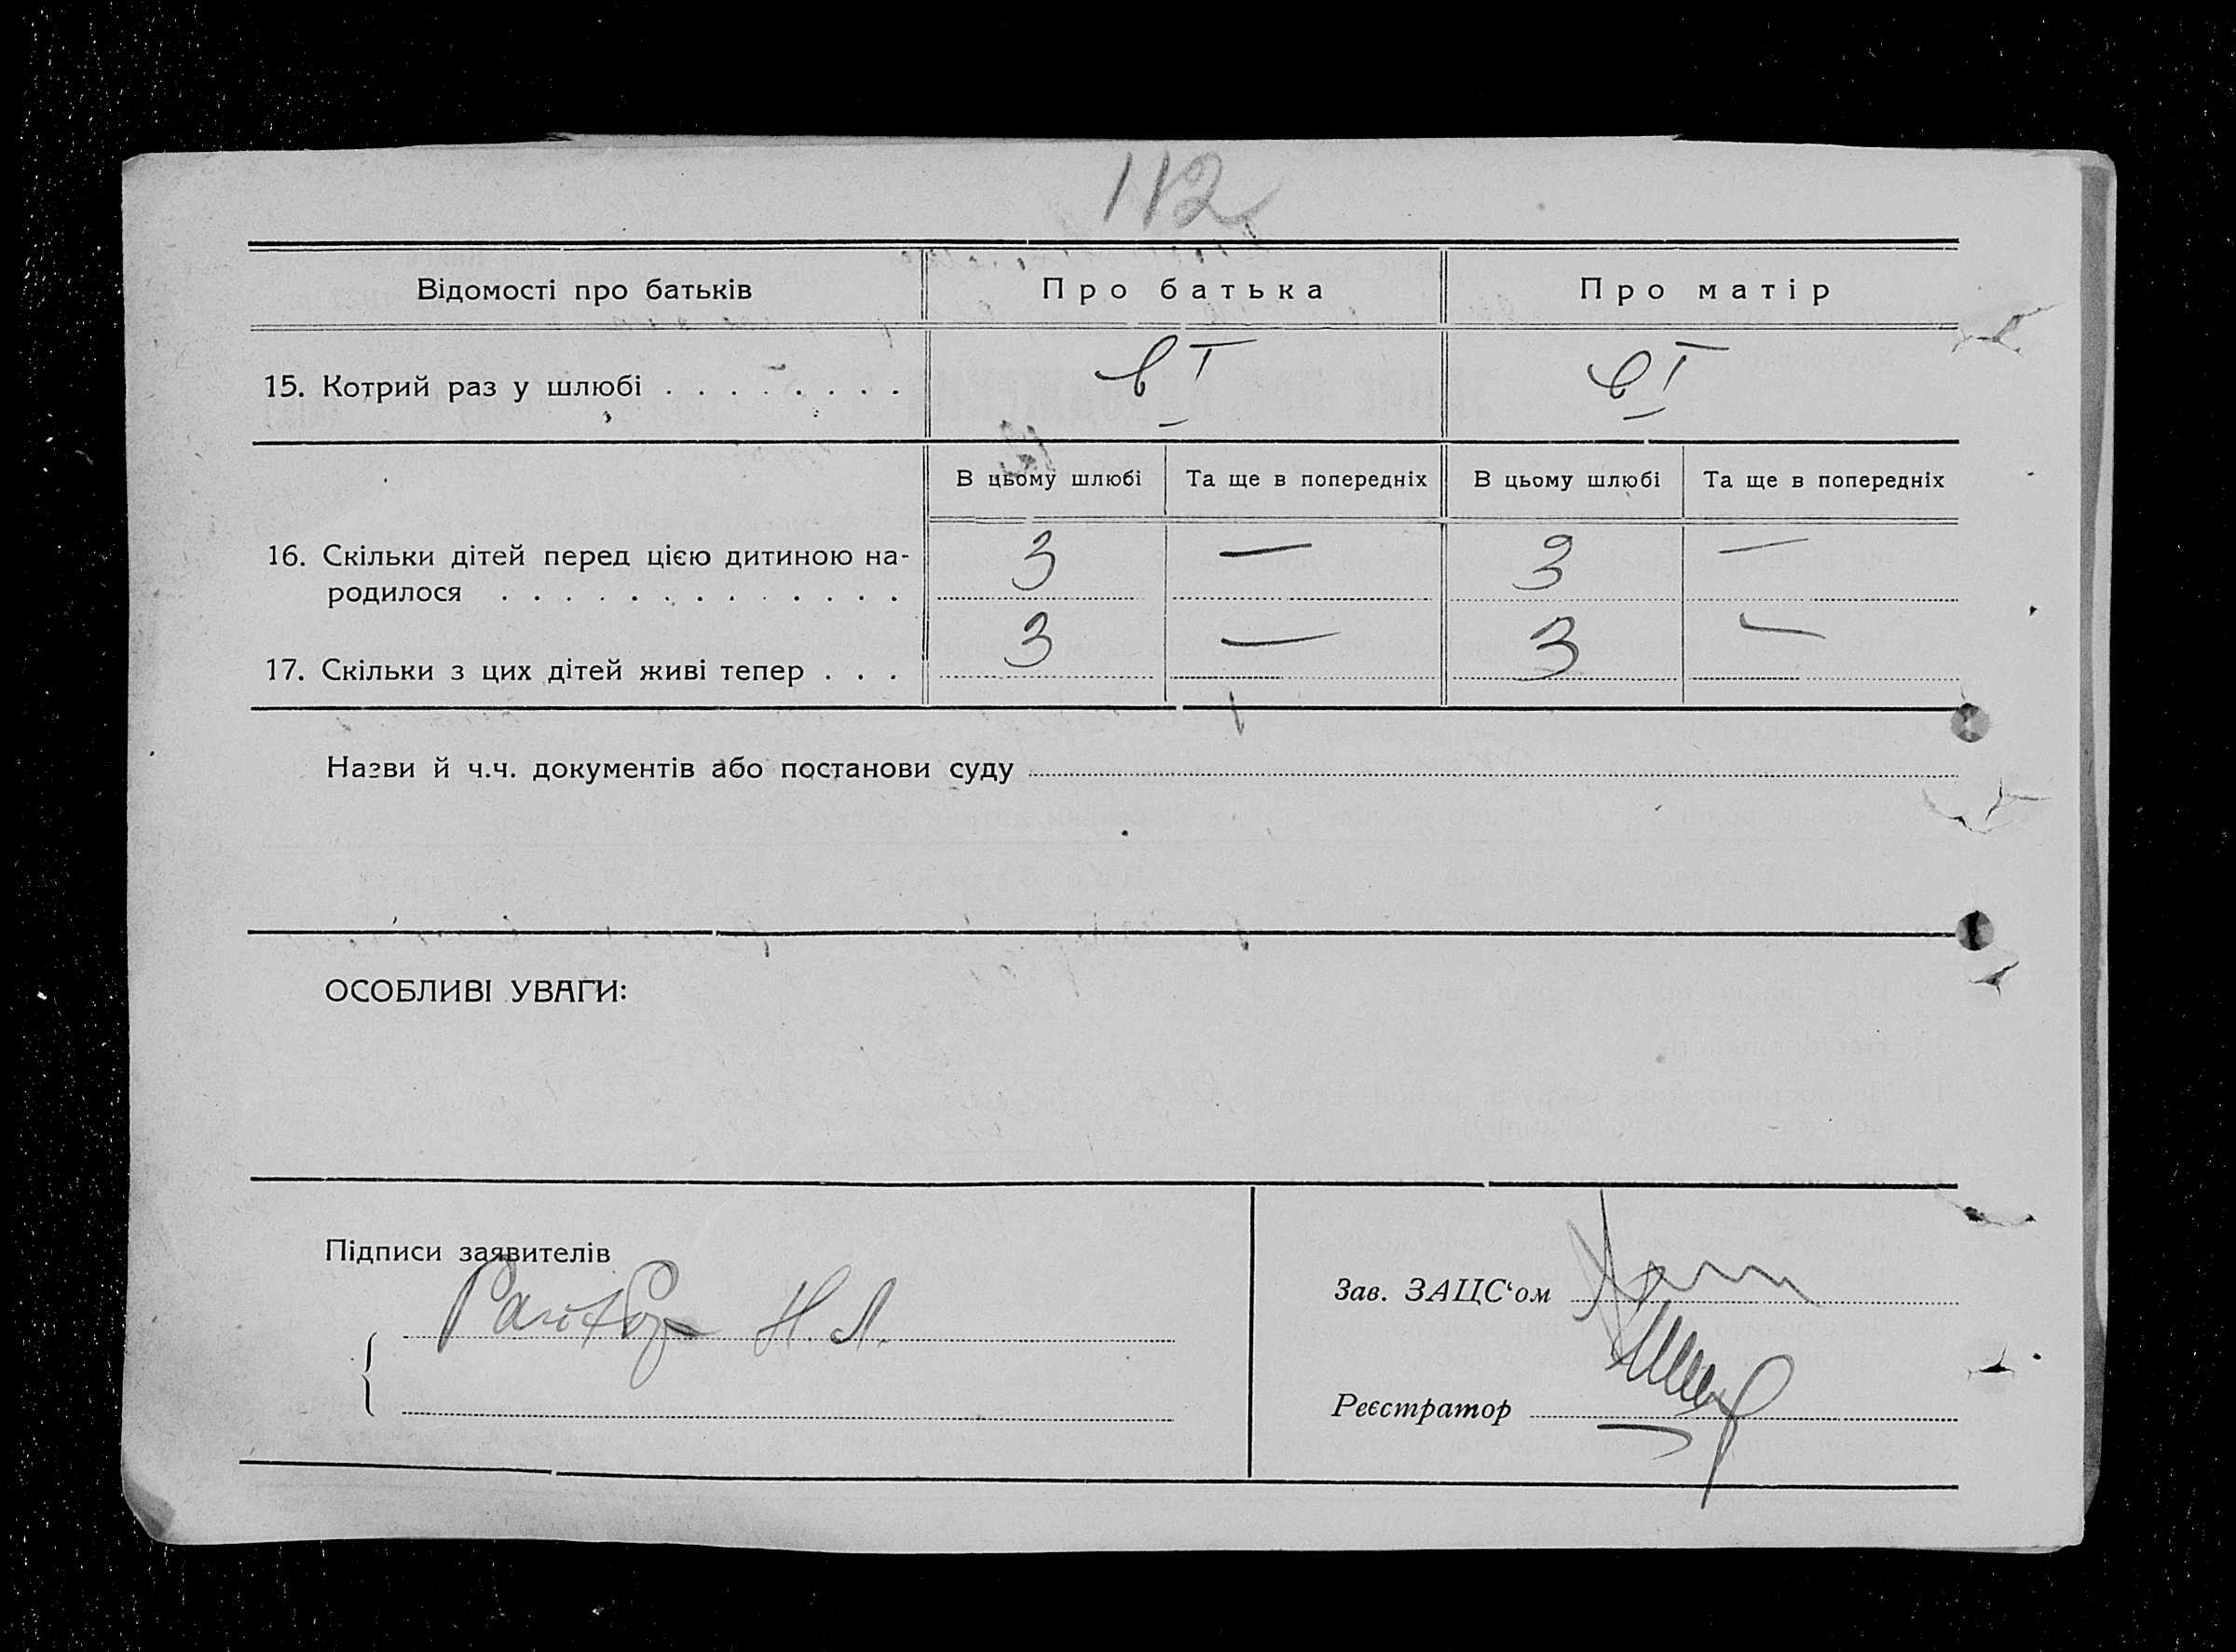 112
Відомості про батьків Про батька Про матір
15. Котрий раз у шлюбі . . . . . . . . в I в I
В цьому шлюбі Та ще в попередніх В цьому шлюбі Та ще в попередніх
16. Скільки дітей перед цією дитиною на-
родилося . . . . . . . . . . . . . 3 — 3 —
17. Скільки з цих дітей живі тепер . . . 3 — 3 —
Назви й ч.ч. документів або постанови суду
ОСОБЛИВІ УВАГИ:
Підписи заявителів
Н. Л.
Зав. ЗАЦС‘ом
Реєстратор